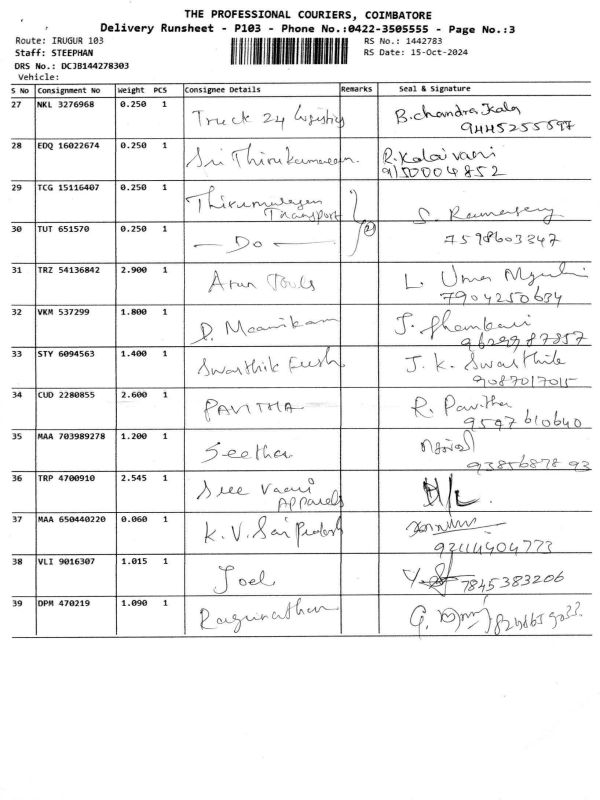 THE PROFESSIONAL COURIERS, COIMBATORE
Delivery Runsheet - P103 - Phone No.:0422-3505555 - Page No.:3
Route: IRUGUR 103 RS No.: 1442783
Staff: STEEPHAN RS Date: 15-Oct-2024
DRS No.: DCJB144278303
Vehicle:
S No Consignment No Weight PCS Consignee Details Remarks Seal & Signature
27 NKL 3276968 0.250 1 Truck 24 Logistics B.chandra kala
9445255597
28 EDQ 16022674 0.250 1 Sri Thirukumaran R.Kalaivani
9150004852
29 TCG 15116407 0.250 1 Thirumurugan
Transport S.
30 TUT 651570 0.250 1 — Do — (2) 7598603347
31 TRZ 54136842 2.900 1 Arun Tools L. Uma
7904250634
32 VKM 537299 1.800 1 D. Maanikam J.
9629987857
33 STY 6094563 1.400 1 Swasthik J. K. Swasthik
9087017015
34 CUD 2280855 2.600 1 PAVITHA R. Pavitha
9597610640
35 MAA 703989278 1.200 1 Seetha
9385687893
36 TRP 4700910 2.545 1 Sree Vaari
Apparels
37 MAA 650440220 0.060 1 K.V. Sai
38 VLI 9016307 1.015 1 Joel 7845383206
39 DPM 470219 1.090 1 Ragunathan G.